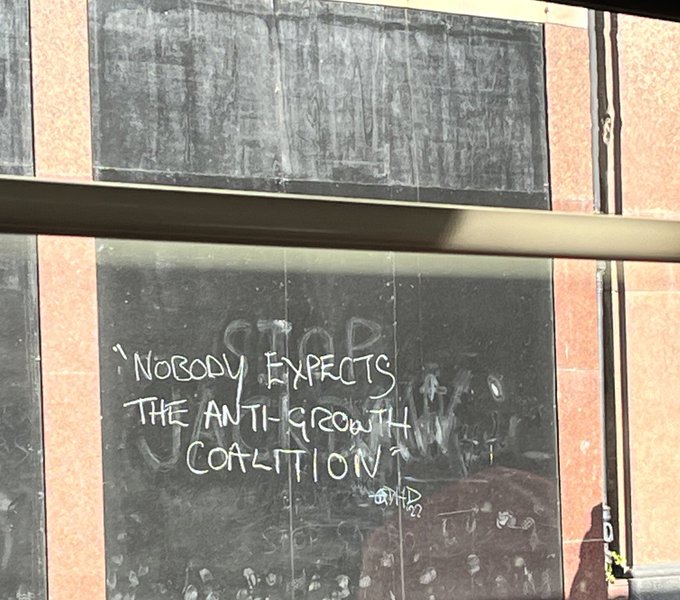 STOP
"NOBODY EXPECTS
THE ANTI-GROWTH
COALITION"
22